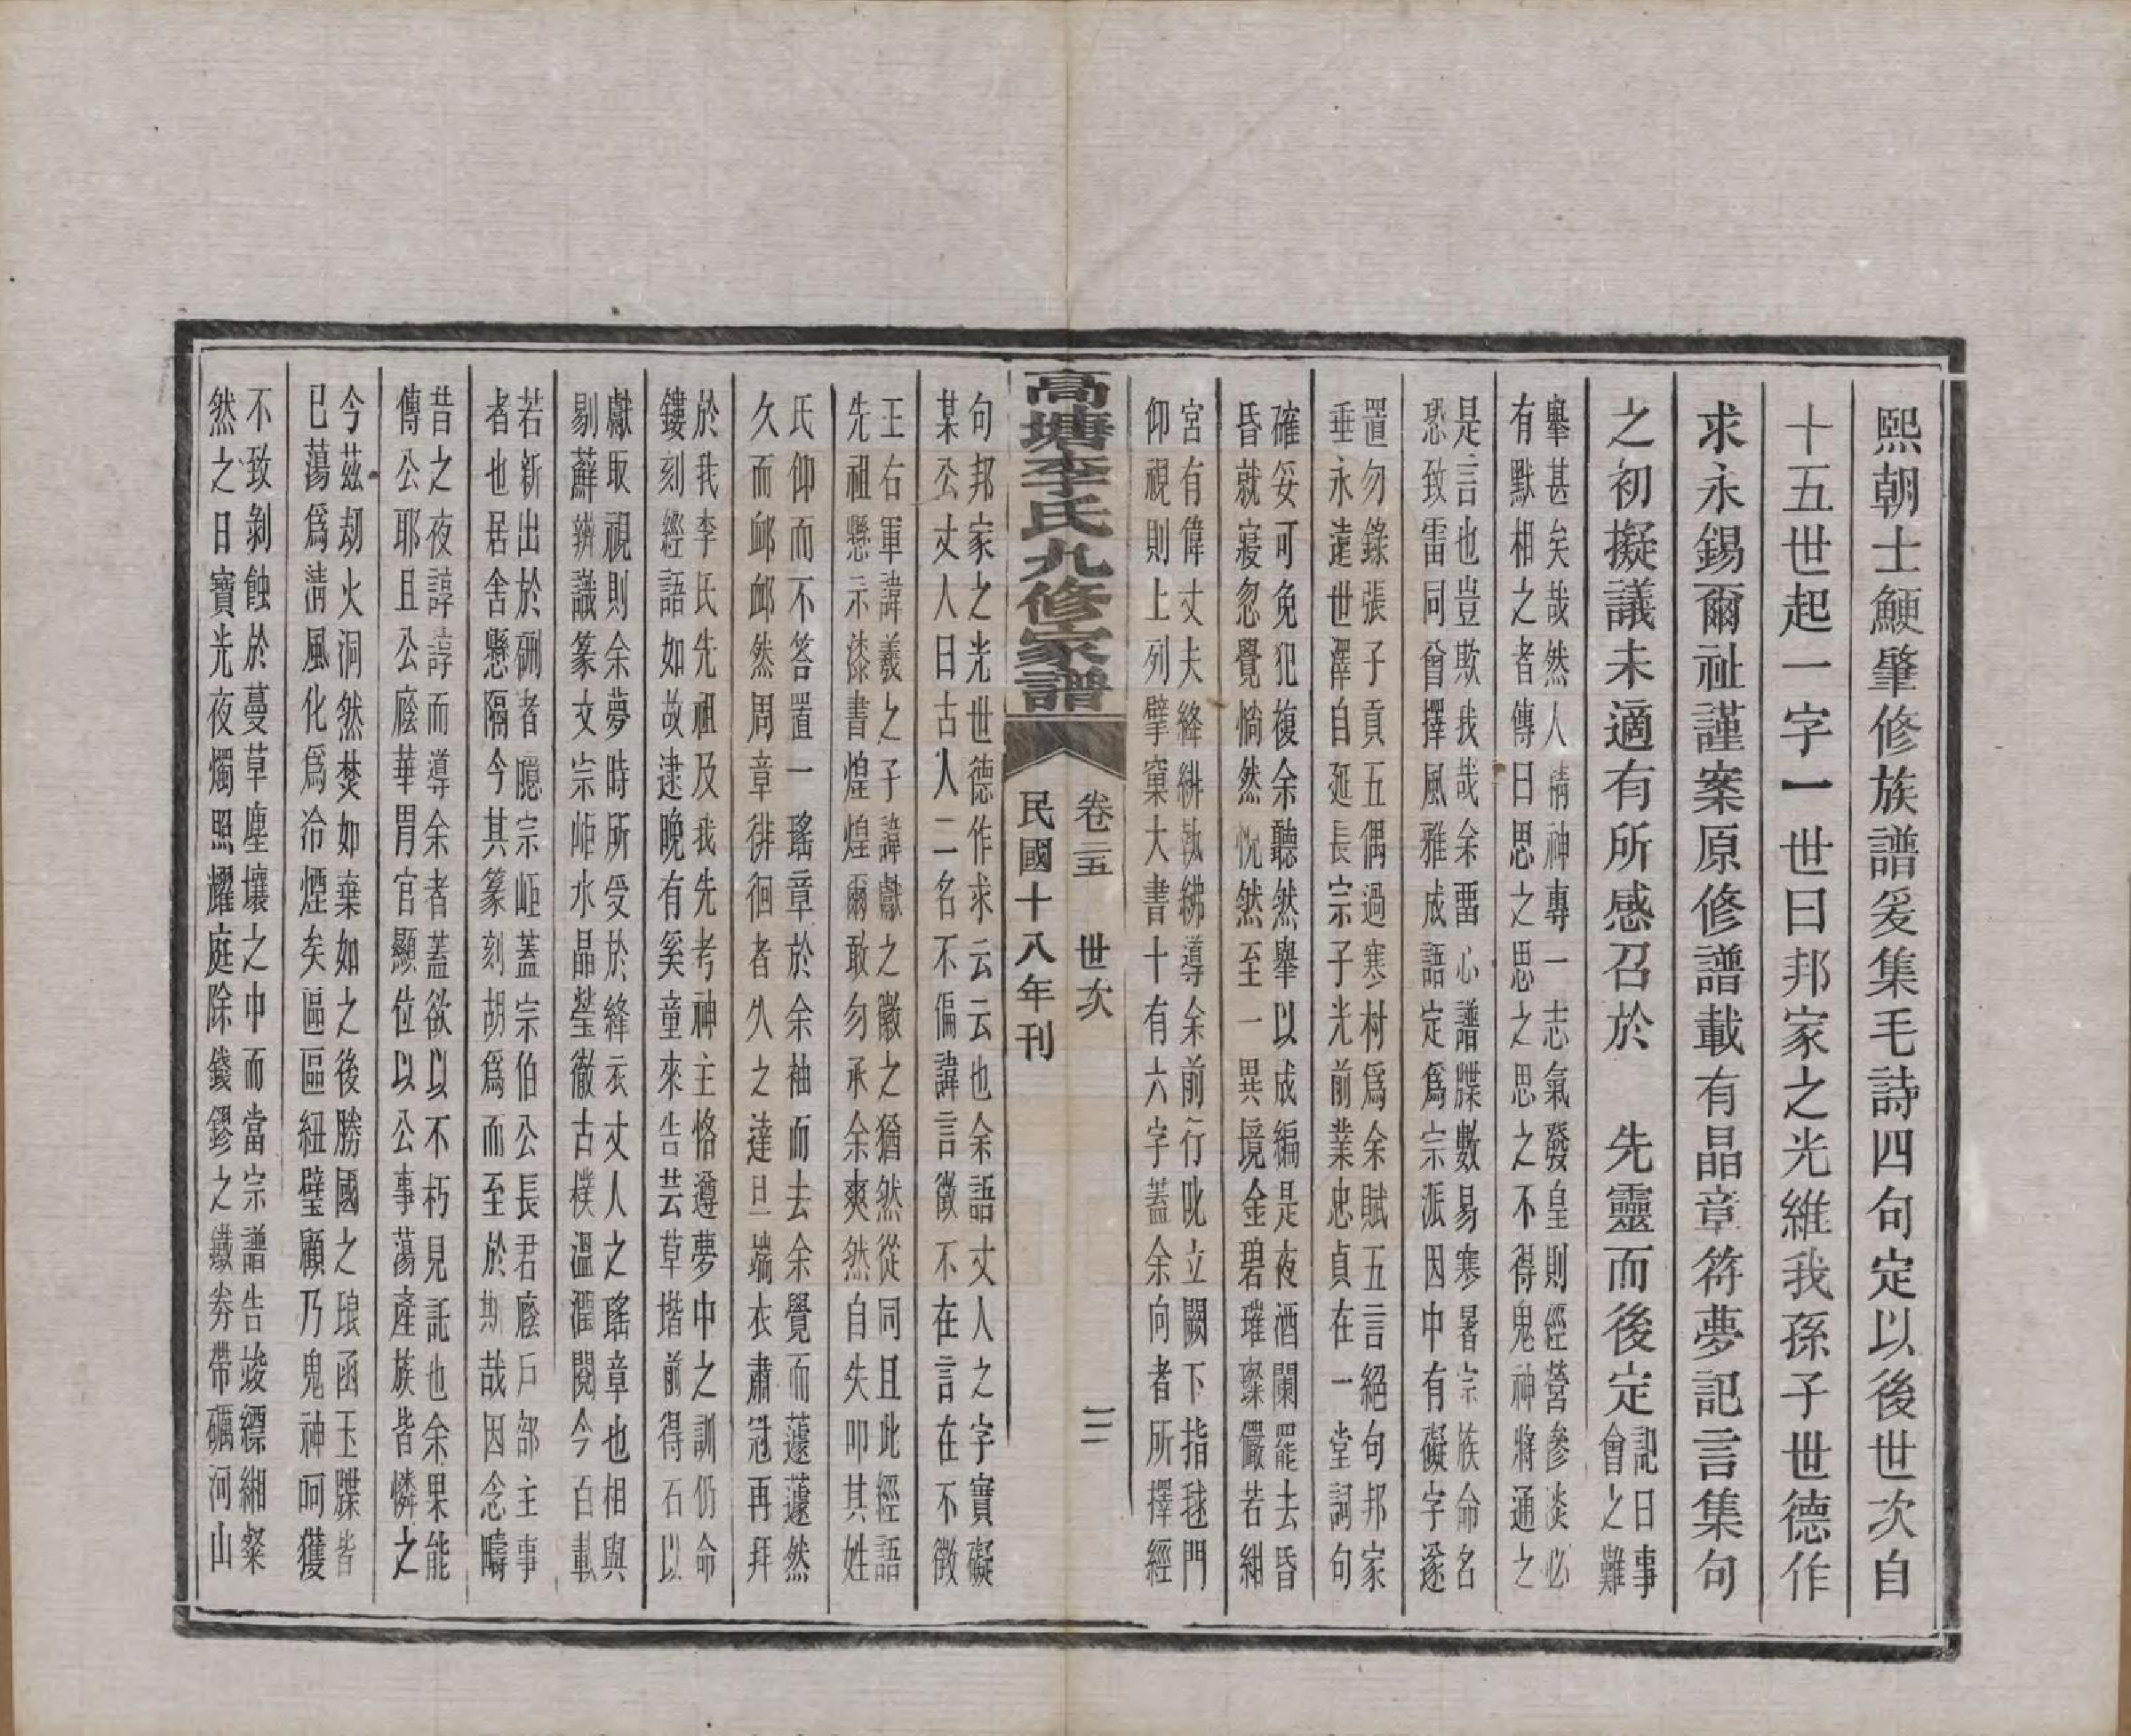 熙朝士鯁肇修族譜爰集毛詩四句定以後世次自
十五世起一字一世曰邦家之光維我孫子世德作
求永錫爾祉謹案原修譜載有晶章符夢記言集句
之初擬議未適有所感召於 先靈而後定
記曰事
會之難
舉甚矣哉然人精神專一志氣發皇則經營參淡必
有默相之者傳曰思之思之思之不得鬼神將通之
是言也豈欺我哉余畱心譜牒數易寒暑宗族命名
恐致雷同曾擇風雅成語定爲宗派因中有礙字遂
置勿錄張子貢五偶過寒村爲余賦五言絕句邦家
垂永遠世澤自延長宗子光前業忠貞在一堂詞句
確妥可免犯複余聽然舉以成編是夜酒闌罷去昏
昏就寢忽覺惝然恍然至一異境金碧璀璨儼若紺
宮有偉丈夫絳絣執紼導余前行叱立闕下指毬門
仰視則上列擘窠大書十有六字蓋余向者所擇經
高塘李氏九修家譜
卷二五 世次
三
民國十八年刊
句邦家之光世德作求云云也余語丈人之字實礙
某公丈人曰古人二名不偏諱言徵不在言在不徵
王右軍諱羲之子諱獻之徽之猶然從同且此經語
先祖懸示漆書煌煌爾敢勿承余爽然自失叩其姓
氏仰而不答置一瑤章於余袖而去余覺而蘧蘧然
久而邮邮然周章徘徊者久之達旦端衣肅冠再拜
於我李氏先祖及我先考神主恪遵夢中之訓仍命
鏤刻經語如故逮晚有奚童來告芸草堦前得石以
獻取視則余夢時所受於絳衣丈人之瑤章也相與
剔蘚辨識篆文宗岠水晶瑩徹古樸溫潤閱今百載
若新出於硎者隱宗岠蓋宗伯公長君廕戶部主事
者也居舍懸隔今其篆刻胡爲而至於斯哉因念疇
昔之夜諄諄而導余者蓋欲以不朽見託也余果能
傳公耶且公廕華胃官顯位以公事蕩產族皆憐之
今茲劫火洞然焚如棄如之後勝國之琅函玉牒皆
已蕩爲淸風化爲冷煙矣區區紐璧顧乃鬼神呵獲
不致剝蝕於蔓草塵壤之中而當宗譜告竣縹緗粲
然之日寶光夜燭照耀庭除錢鏐之鐵券帶礪河山